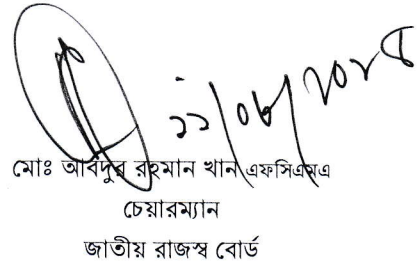 মোঃ আবদুর রহমান খান এফসিএমএ
চেয়ারম্যান
জাতীয় রাজস্ব বোর্ড